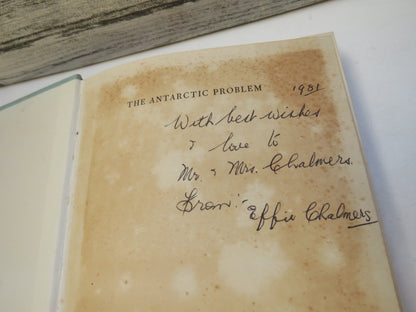 THE ANTARCTIC PROBLEM
1981
With best wishes
& love to
Mr. & Mrs. Chalmers.
From:-
Effie Chalmers